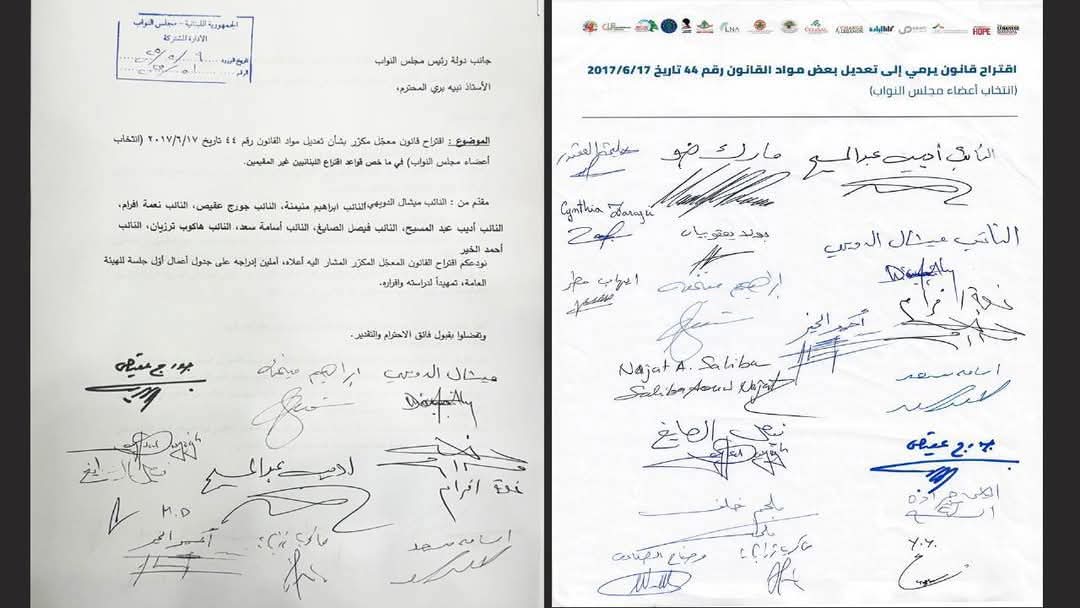 الجمهورية اللبنانية - مجلس النواب
الادارة المشتركة
جانب دولة رئيس مجلس النواب
الأستاذ نبيه بري المحترم،
الموضوع : اقتراح قانون معجّل مكرّر بشأن تعديل مواد القانون رقم ٤٤ تاريخ ٢٠١٧/٦/١٧ (انتخاب
أعضاء مجلس النواب) في ما خص قواعد اقتراع اللبنانيين غير المقيمين.
مقدّم من : النائب ميشال الدويهي النائب ابراهيم منيمنة، النائب جورج عقيص، النائب نعمة افرام،
النائب أديب عبد المسيح، النائب فيصل الصايغ، النائب أسامة سعد، النائب هاكوب ترزيان، النائب
أحمد الخير
نودعكم اقتراح القانون المعجّل المكرّر المشار اليه أعلاه، آملين إدراجه على جدول أعمال أوّل جلسة للهيئة
العامة، تمهيداً لدراسته وإقراره.
وتفضلوا بقبول فائق الاحترام والتقدير.
ميشال الدويهي ابراهيم منيمنة جورج عقيص
نعمة افرام
أديب عبد المسيح
فيصل الصايغ
M.D
اسامه سعد
أحمد الخير
LNA
HOPE
اقتراح قانون يرمي إلى تعديل بعض مواد القانون رقم 44 تاريخ 2017/6/17
(انتخاب أعضاء مجلس النواب)
النائب أديب عبد المسيح
مارك ضو
Cynthia Zarazir
النائب ميشال الدويهي
بولا يعقوبيان
نعمة افرام
ابراهيم منيمنة
أحمد الخير
Najat A. Saliba
Saliba Aoun Najat
اسامه سعد
فيصل الصايغ
جورج عقيص
الياس جراده
ملحم خلف